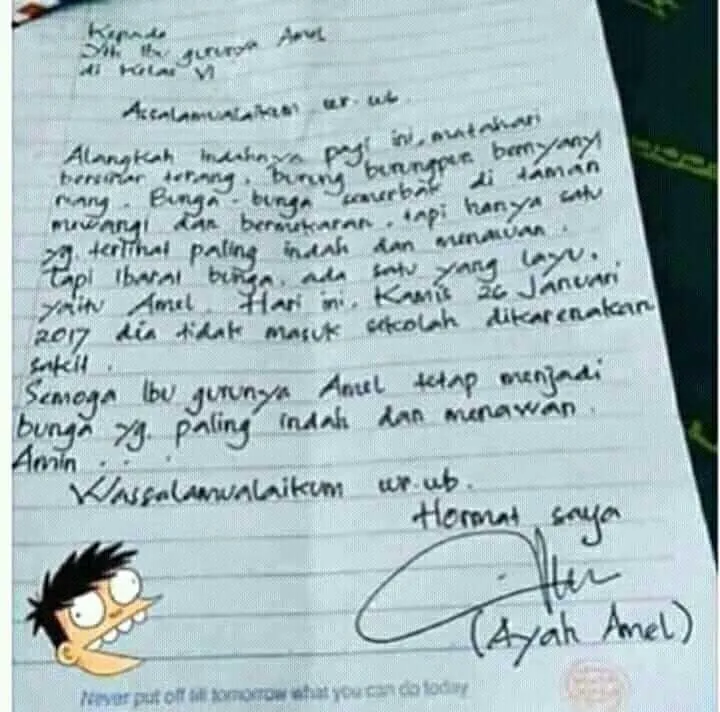 Kepada
Yth Ibu gurunya Amel
di Kelas VI
Assalamualaikum wr. wb.
Alangkah indahnya pagi ini, matahari
bersinar terang, burung burungpun bernyanyi
riang. Bunga-bunga semerbak di taman
mewangi dan bermekaran, tapi hanya satu
yg. terlihat paling indah dan menawan.
Tapi Ibarat bunga, ada satu yang layu.
yaitu Amel. Hari ini, Kamis 26 Januari
2017 dia tidak masuk sekolah dikarenakan
sakit.
Semoga Ibu gurunya Amel tetap menjadi
bunga yg. paling indah dan menawan.
Amin . . .
Wassalamualaikum wr. wb.
Hormat saya
(Ayah Amel)
Never put off till tomorrow what you can do today